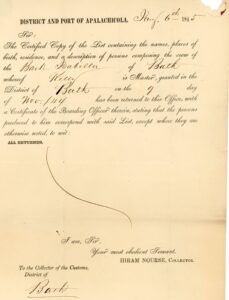 DISTRICT AND PORT OF APALACHICOLA, 6th 1845
Sir,
The Certified Copy of the List containing the names, places of
birth, residence, and a description of persons composing the crew of
the Bark Isabella of Bath
whereof is Master, granted in the
District of Bath on the 9 day
of Nov. 1844 has been returned to this Office, with
a Certificate of the Boarding Officer thereon, stating that the persons
produced to him correspond with said List, except where they are
otherwise noted, to wit:
ALL RETURNED.
I am, Sir,
Your most obedient Servant,
HIRAM NOURSE, COLLECTOR.
To the Collector of the Customs,
District of
Bath